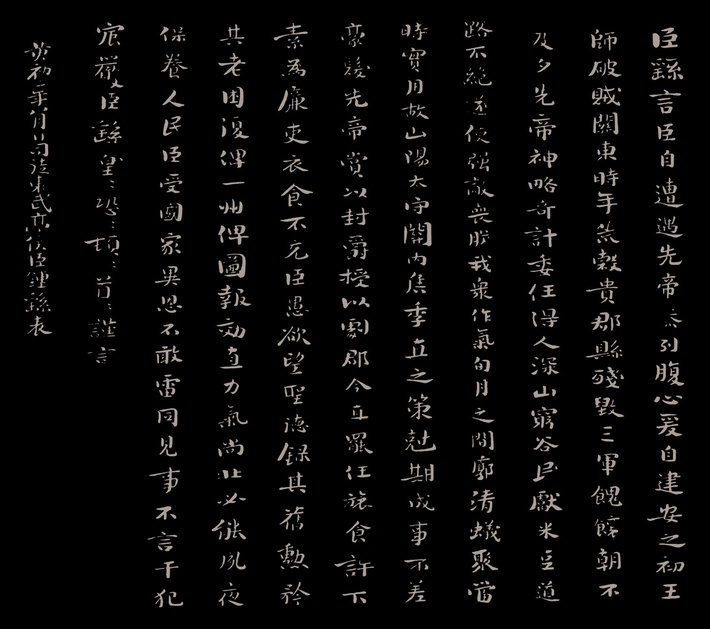 臣繇言臣自遭遇先帝忝列腹心爰自建安之初王
師破賊關東時年荒穀貴郡縣殘毀三軍餽饟朝不
及夕先帝神略奇計委任得人深山窮谷民獻米豆道
路不絕遂使強敵喪膽我眾作氣旬月之間廓清蟻聚當
時實用故山陽太守關內侯季直之策剋期成事不差
豪髮先帝賞以封爵授以劇郡今直罷任旅食許下
素為廉吏衣食不充臣愚欲望聖德錄其舊勳矜
其老困復俾一州俾圖報效直力氣尚壯必能夙夜
保養人民臣受國家異恩不敢雷同見事不言干犯
宸嚴臣繇皇皇恐恐頓頓首首謹言
黃初二年八月日司徒東武亭侯臣鍾繇表